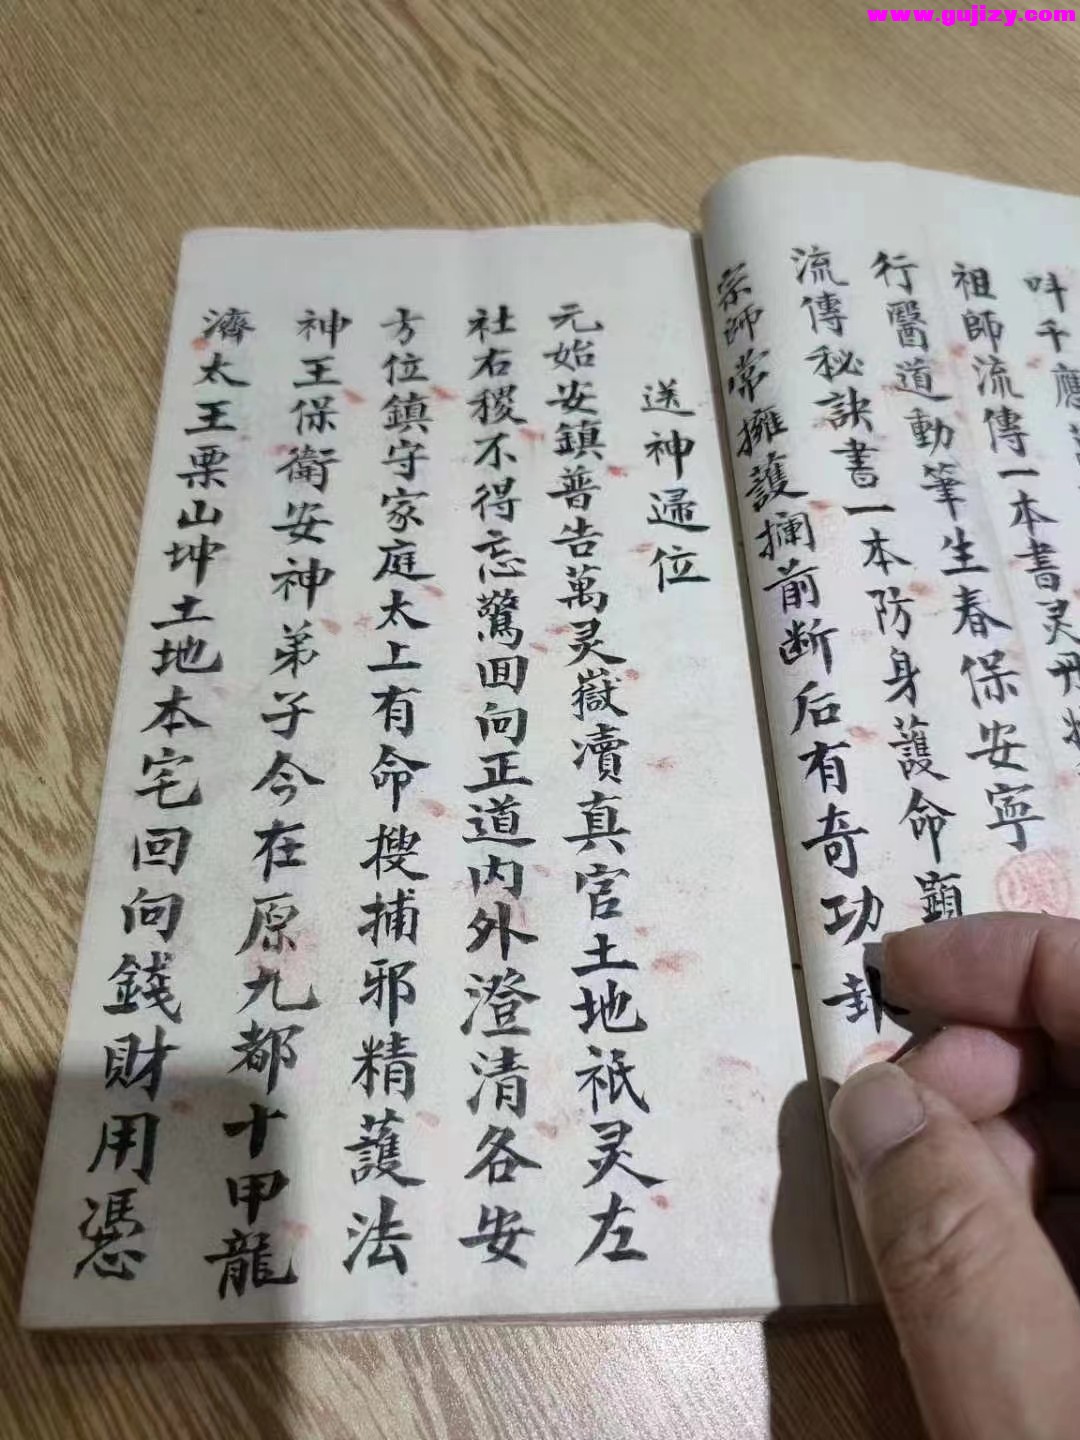 www.gujizy.com
叫千應
祖師流傳一本書灵丹
行醫道動筆生春保安寧
流傳秘訣書一本防身護命顕
宗師常擁護攔前断后有奇功
送神歸位
元始安鎮普告萬灵嶽瀆真官土地祇灵左
社右稷不得忘驚囬向正道内外澄清各安
方位鎮守家庭太上有命搜捕邪精護法
神王保衛安神弟子今在原九都十甲龍
濟太王栗山坤土地本宅回向錢財用憑